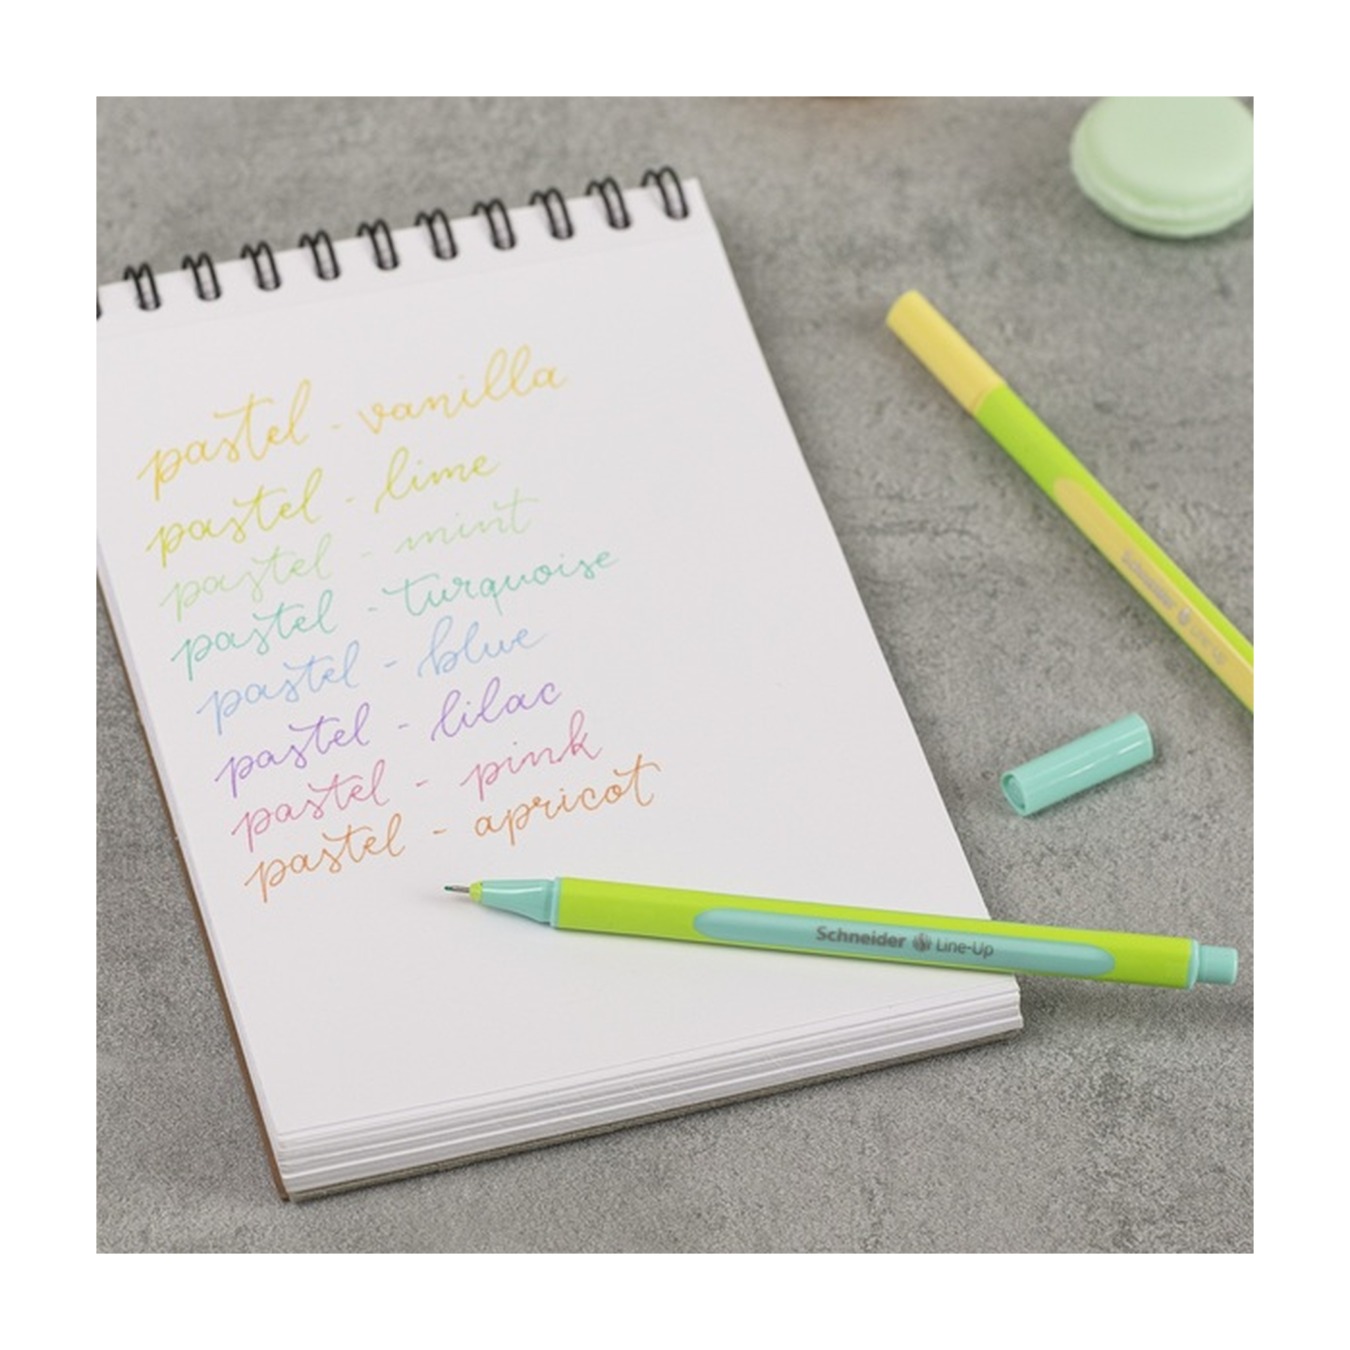 pastel - vanilla
pastel - lime
pastel - mint
pastel - turquoise
pastel - blue
pastel - lilac
pastel - pink
pastel - apricot
Schneider Line-Up
Schneider Line-Up